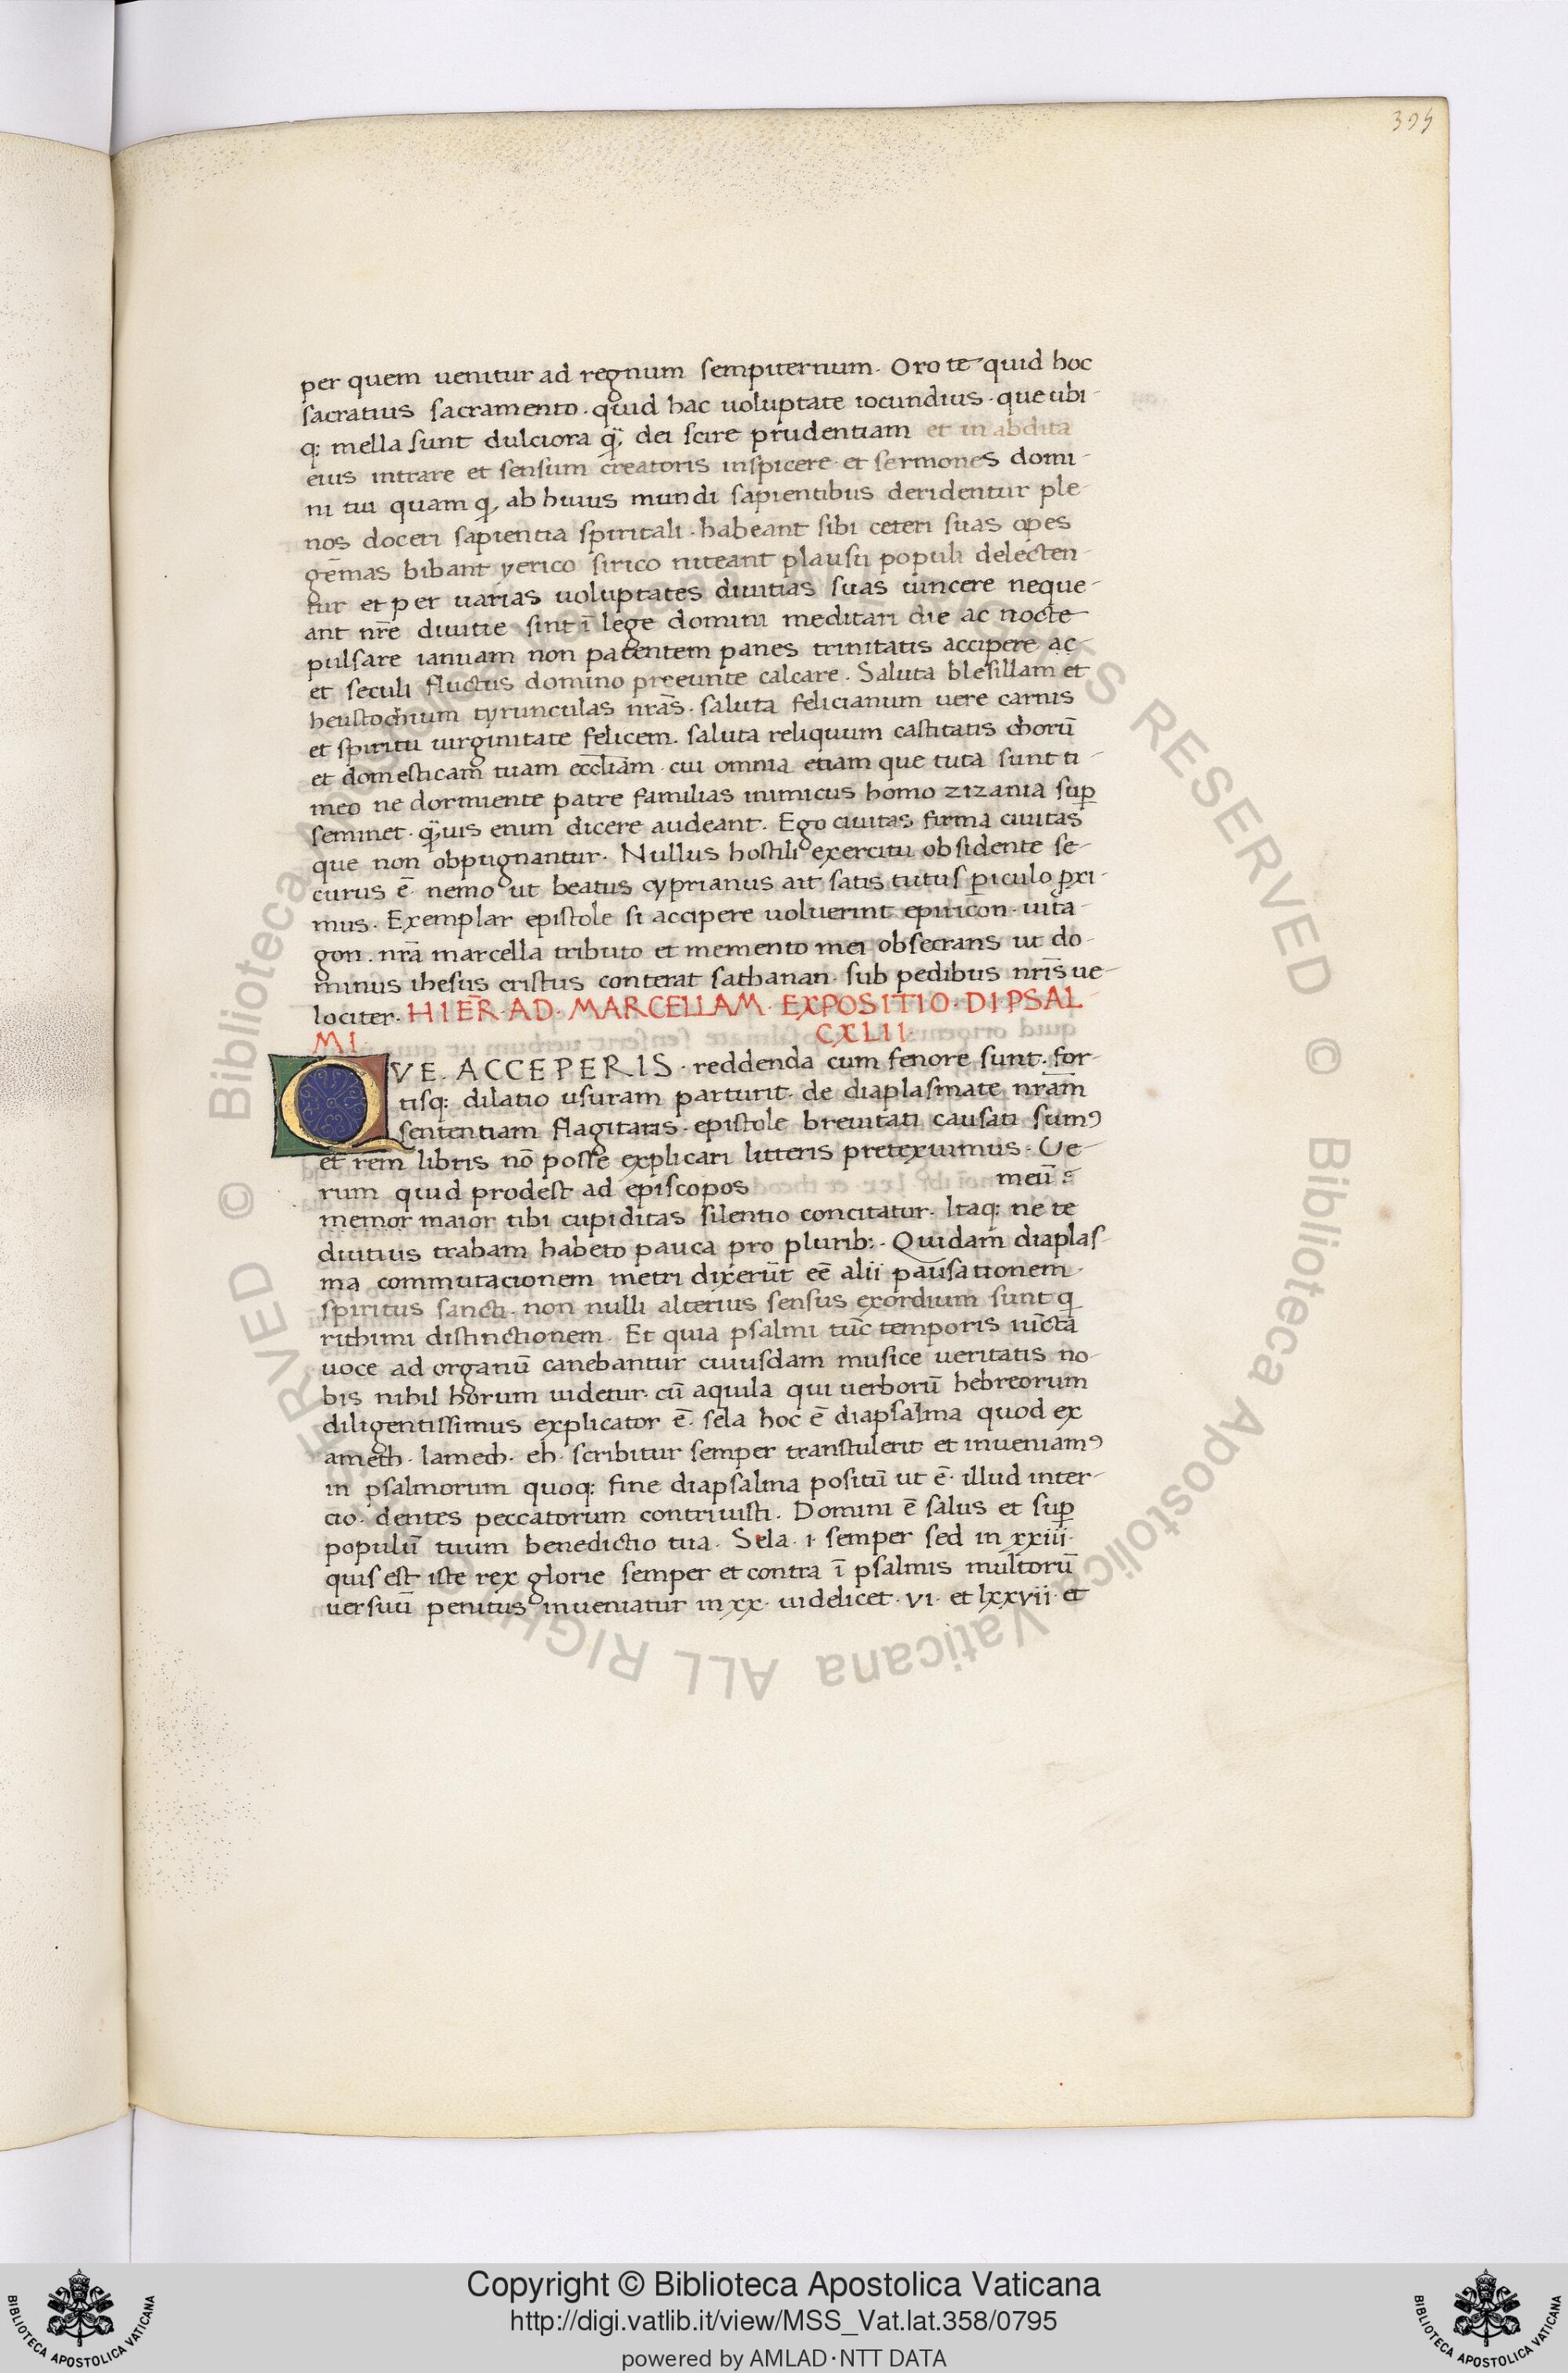 395
per quem uenitur ad regnum sempiternum. Oro te quid hoc
sacratius sacramento. quid hac uoluptate iocundius. que ubi-
q: mella sunt dulciora q̃ dei scire prudentiam et in abdita
eius intrare et sensum creatoris inspicere. et sermones domi-
ni tui quam q, ab huius mundi sapientibus deridentur ple-
nos doceri sapientia spiritali. habeant sibi ceteri suas opes
gēmas bibant yerico sirico niteant plausu populi delecten-
tur et per uarias uoluptates diuitias suas uincere neque-
ant nr̄e diuitie sint ī lege domini meditari die ac nocte
pulsare ianuam non patentem panes trinitatis accipere ac
et seculi fluctus domino preeunte calcare. Saluta blesillam et
heustochium tyrunculas nrās. saluta felicianum uere carnis
et spiritu uirginitate felicem. saluta reliquum castitatis chorū
et domesticam tuam eccl̄iam. cui omnia etiam que tuta sunt ti-
meo ne dormiente patre familias inimicus homo zizania sup̄
seminet. q̃uis enim dicere audeant. Ego ciuitas firma ciuitas
que non obpugnantur. Nullus hostili exercitu obsidente se-
curus ē. nemo ut beatus cyprianus ait satis tutus ꝑiculo ꝓxi-
mus. Exemplar epistole si accipere uoluerint epiticon. uita-
gon. nrā marcella tributo et memento mei obsecrans ut do-
minus ihesus cristus conterat sathanan. sub pedibus nrīs ue-
lociter. HIER̄. AD. MARCELLAM. EXPOSITIO. DIPSAL-
MI. CXLII.
QVE. ACCEPERIS. reddenda cum fenore sunt. for-
tisq: dilatio usuram parturit. de diaplasmate nrām
sententiam flagitatis. epistole breuitati causati sumꝰ
et rem libris nō posse explicari litteris pretexuimus. Ve-
rum quid prodest ad episcopos meū :
memor maior tibi cupiditas silentio concitatur. Itaq: ne te
diutius traham habeto pauca pro plurib:. Quidam diaplas-
ma commutacionem metri dixerūt eē alii pausationem
spiritus sancti. non nulli alterius sensus exordium sunt q
rithimi distinctionem. Et quia psalmi tūc temporis iūcta
uoce ad organū canebantur cuiusdam musice ueritatis no-
bis nihil horum uidetur. cū aquila qui uerborū hebreorum
diligentissimus explicator ē. sela hoc ē diapsalma quod ex
ameth. lamech. eh. scribitur semper transtulerit et inueniamꝰ
in psalmorum quoq: fine diapsalma positū ut ē. illud inter-
cio. dentes peccatorum contriuisti. Domini ē salus et sup̄
populū tuum benedictio tua. Sela. i. semper sed in xxiii.
quis est iste rex glorie semper et contra ī psalmis multorū
uersuū penitus inueniatur in xx. uidelicet. vi. et lxxvii. et
© Biblioteca Apostolica Vaticana ALL RIGHTS RESERVED © Biblioteca Apostolica Vaticana ALL RIGHTS RESERVED
BIBLIOTECA APOSTOLICA VATICANA
Copyright © Biblioteca Apostolica Vaticana
http://digi.vatlib.it/view/MSS_Vat.lat.358/0795
powered by AMLAD·NTT DATA
BIBLIOTECA APOSTOLICA VATICANA